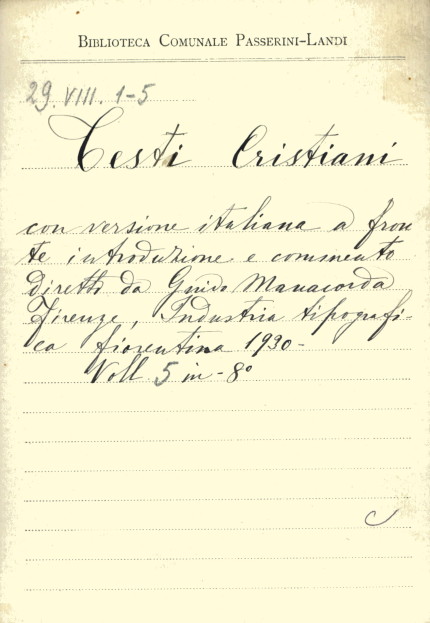 BIBLIOTECA COMUNALE PASSERINI-LANDI
29. VIII. 1-5
Testi Cristiani
con versione italiana a fron
te introduzione e commento
diretti da Guido Manacorda
Firenze, Industria tipografi-
ca fiorentina 1930-
Voll 5 in - 8º